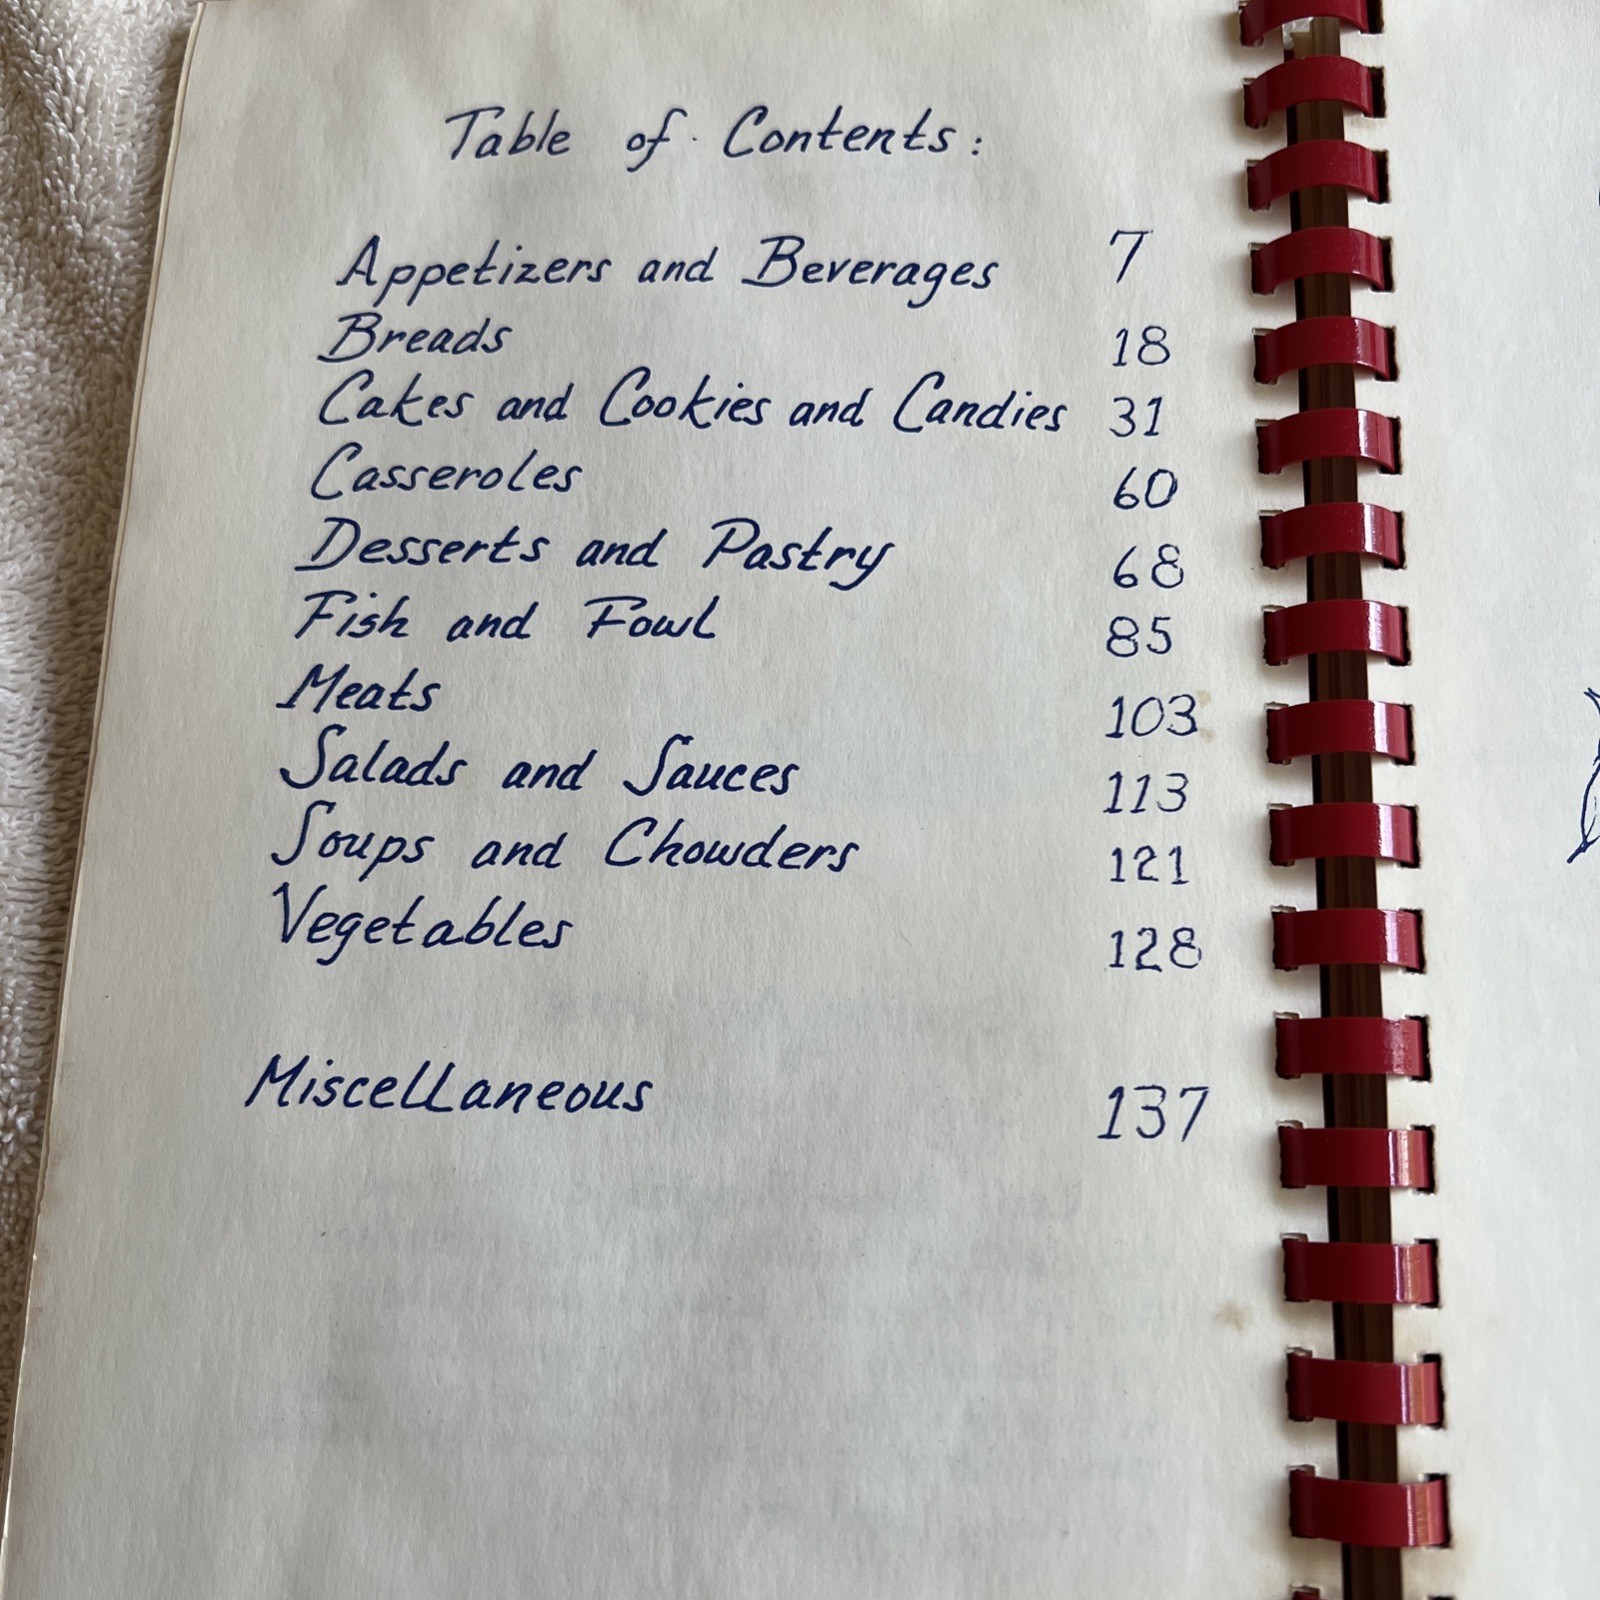 Table of Contents:
Appetizers and Beverages 7
Breads 18
Cakes and Cookies and Candies 31
Casseroles 60
Desserts and Pastry 68
Fish and Fowl 85
Meats 103
Salads and Sauces 113
Soups and Chowders 121
Vegetables 128
Miscellaneous 137